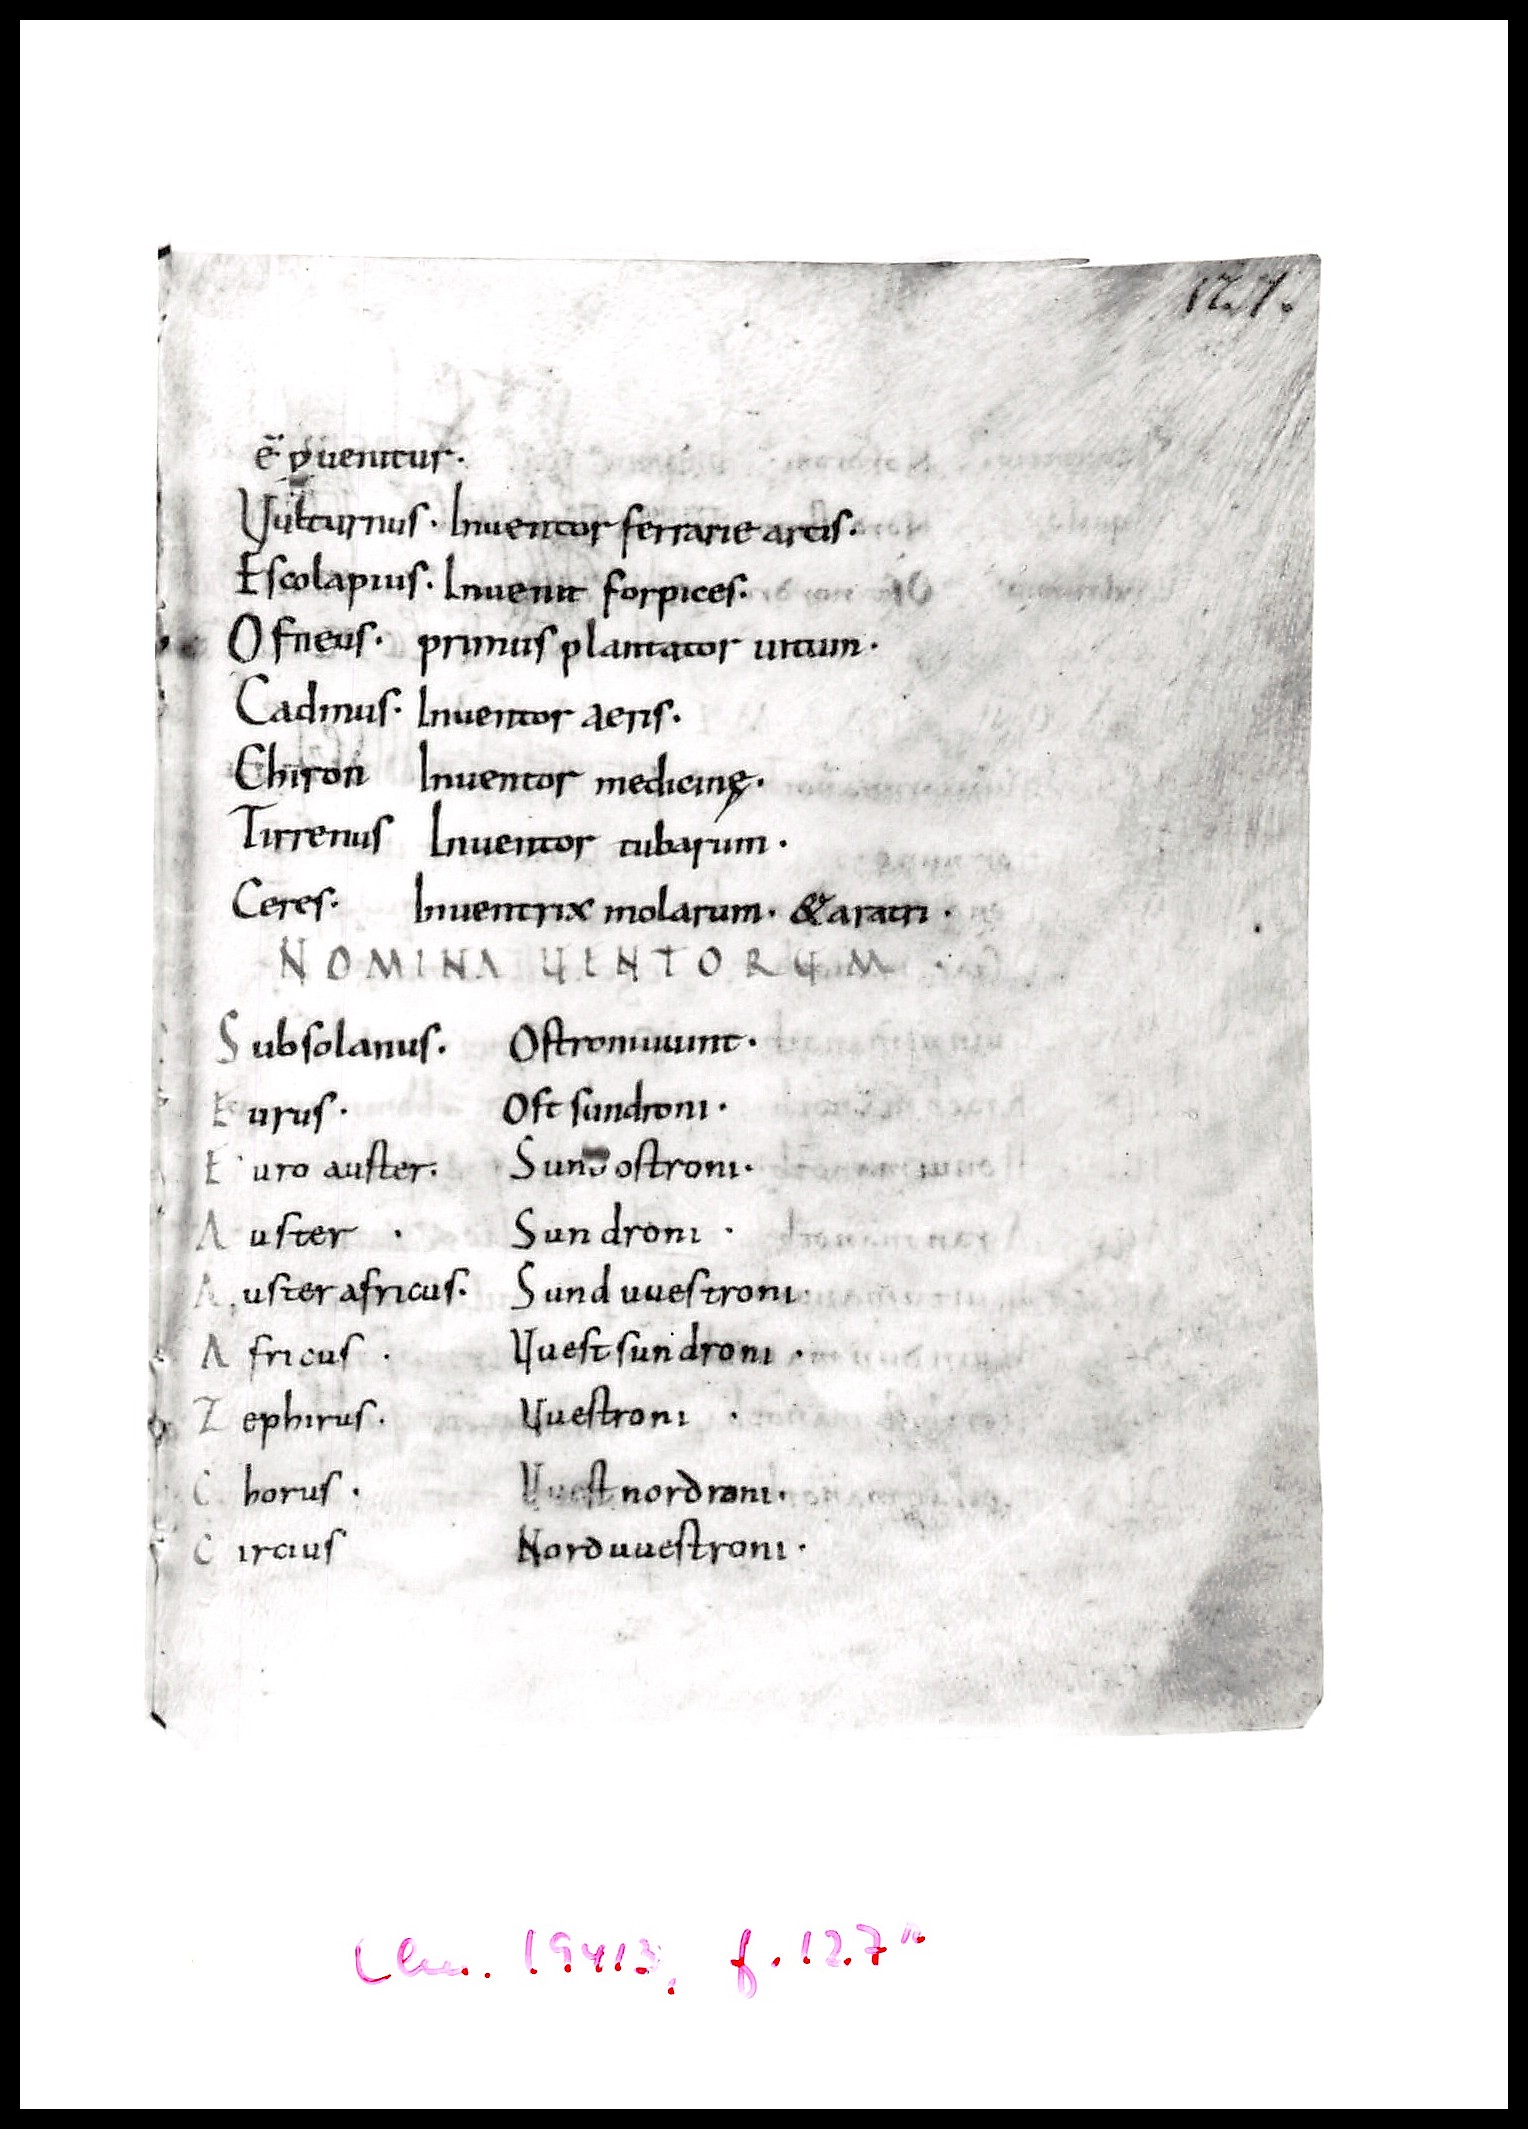 127.
ē puenitur.
Vulturnus. Inuentor ferrarie artis.
Escolapius. Inuenit forpices.
Ofneus. primus plantator uitium.
Cadmus. Inuentor aeris.
Chiron Inuentor medicinę.
Tirrenus Inuentor tubarum.
Ceres. Inuentrix molarum. & aratri.
NOMINA UENTORUM.
Subsolanus. Ostroniuuint.
Eurus. Ostsundroni.
Euro auster. Sundostroni.
Auster. Sundroni.
Auster africus. Sunduuestroni.
Africus. Uuestsundroni.
Zephirus. Uuestroni.
Chorus. Uuestnordroni.
Circius Norduuestroni.
Clm. 19413, f. 127r